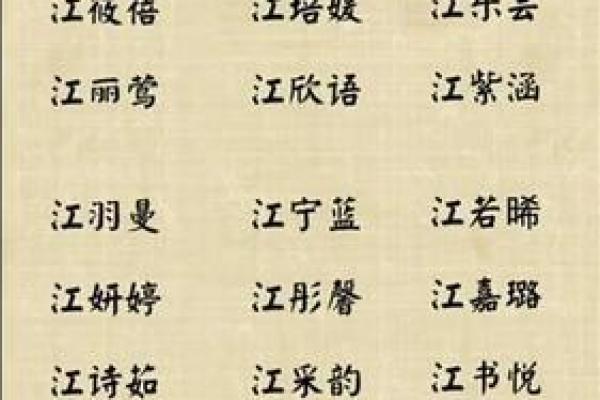 江筱蓓 江培媛 江乐芸
江丽莺 江欣语 江紫涵
江羽曼 江宁蓝 江若晞
江妍婷 江彤馨 江嘉璐
江诗茹 江采韵 江书悦